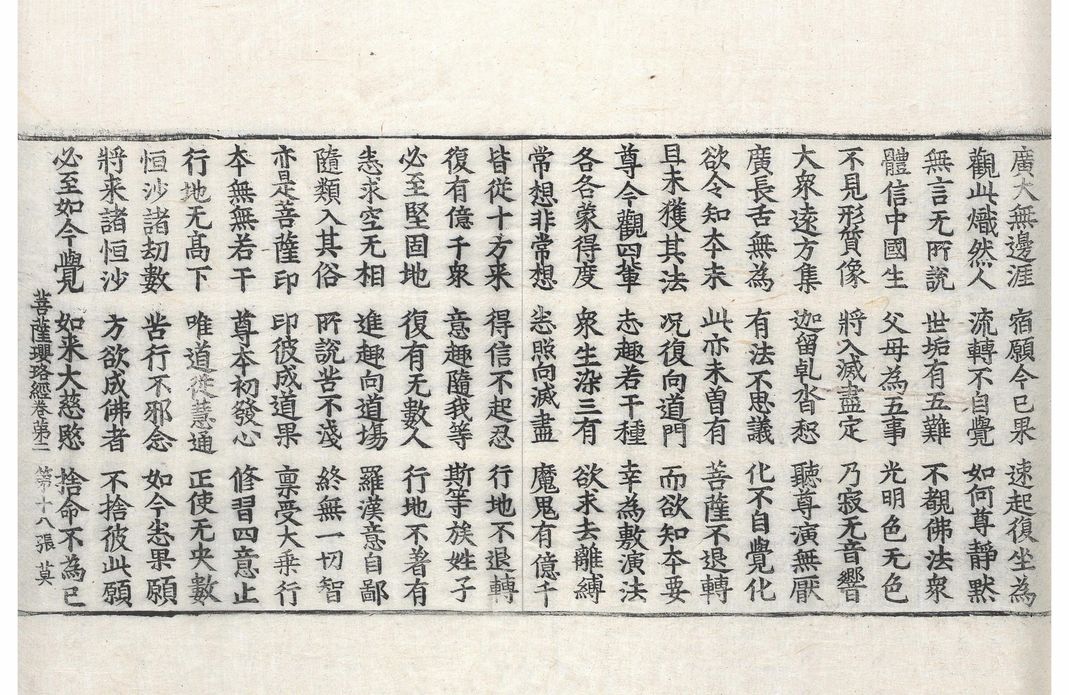 廣大無邊涯　宿願今已果　速起復坐為
觀此熾然人　流轉不自覺　如何尊靜默
無言无所說　世垢有五難　不覩佛法衆
體信中國生　父母為五事　光明色无色
不見形質像　將入滅盡定　乃寂无音響
大衆遠方集　迦留乹沓恕　聽尊演無厭
廣長舌無為　有法不思議　化不自覺化
欲令知本末　此亦未曽有　菩薩不退轉
且未獲其法　况復向道門　而欲知本要
尊今觀四輩　志趣若干種　幸為敷演法
各各蒙得度　衆生染三有　欲求去離縛
常想非常想　悉照向滅盡　魔鬼有億千
皆從十方来　得信不起忍　行地不退轉
復有億千衆　意趣隨我等　斯等族姓子
必至堅固地　復有无數人　行地不著有
悉求空无相　進趣向道場　羅漢意自鄙
隨類入其俗　所說苦不淺　終無一切智
亦是菩薩印　印彼成道果　禀受大乗行
本無無若干　尊本初發心　修習四意止
行地无高下　唯道從慧通　正使无央數
恒沙諸劫數　苦行不邪念　如今悉果願
將来諸恒沙　方欲成佛者　不捨彼此願
必至如今覺　如来大慈愍　捨命不為已
菩薩瓔珞經卷苐二　第十八張　莫